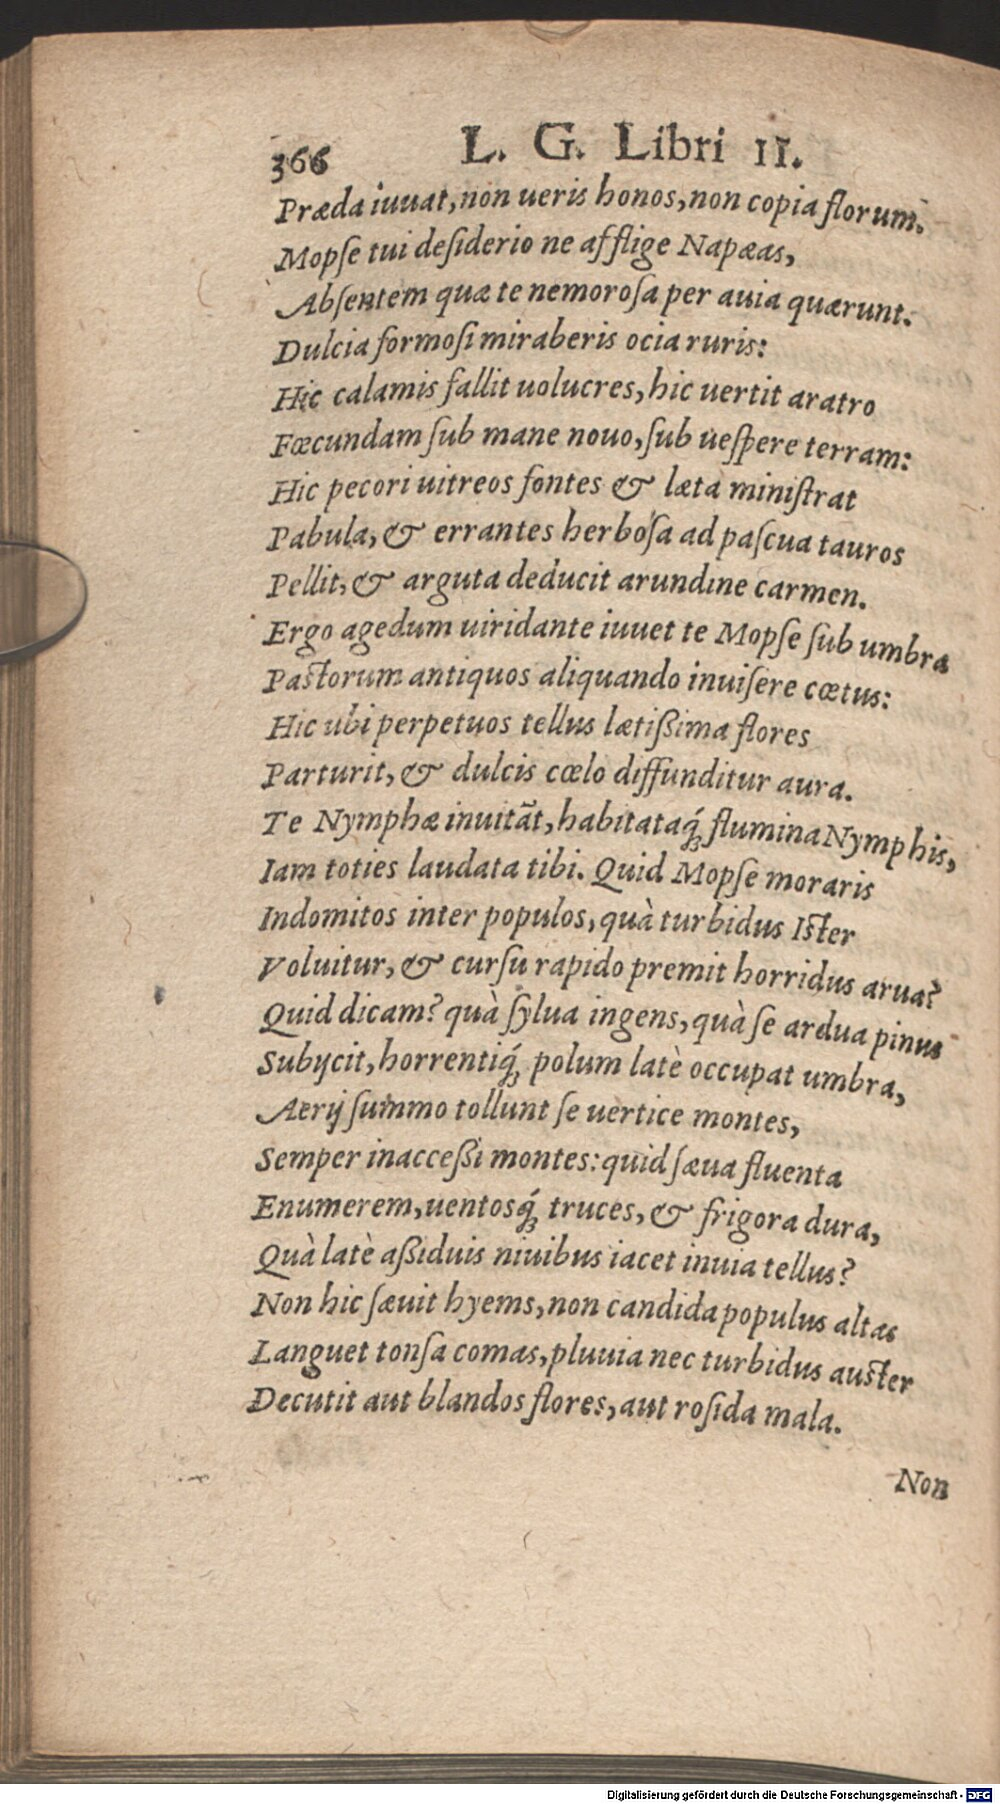 366 L. G. Libri II.
Prædaiuuat, non ueris honos, non copia florum.
Mopſe tui deſiderio ne afflige Napæas,
Abſentem quæ te nemoroſa per auia quærunt.
Dulcia formoſi miraberis ocia ruris:
Hic calamis fallit uolucres, hic uertit aratro
Fœcundam ſub mane nouo, ſub ueſpere terram:
Hic pecori uitreos fontes & læta miniſtrat
Pabula, & errantes herboſa ad paſcua tauros
Pellit, & arguta deducit arundine carmen.
Ergo agedum uiridante iuuet te Mopſe ſub umbra
Paſtorum antiquos aliquando inuiſere cœtus:
Hic ubi perpetuos tellus lætißima flores
Parturit, & dulcis cœlo diffunditur aura.
Te Nymphæ inuitãt, habitataq́ꝫ flumina Nymphis,
Iam toties laudata tibi. Quid Mopſe moraris
Indomitos inter populos, quà turbidus Iſter
Voluitur, & curſu rapido premit horridus arua?
Quid dicam? quà ſylua ingens, quà ſe ardua pinus
Subijcit, horrentiq́ꝫ polum latè occupat umbra,
Aerij ſummo tollunt ſe uertice montes,
Semper inacceßi montes: quid ſæua fluenta
Enumerem, uentosq́ꝫ truces, & frigora dura,
Quà latè aßiduis niuibus iacet inuia tellus?
Non hic ſæuit hyems, non candida populus altas
Languet tonſa comas, pluuia nec turbidus auſter
Decutit aut blandos flores, aut roſida mala.
Non
Digitalisierung gefördert durch die Deutsche Forschungsgemeinschaft - DFG